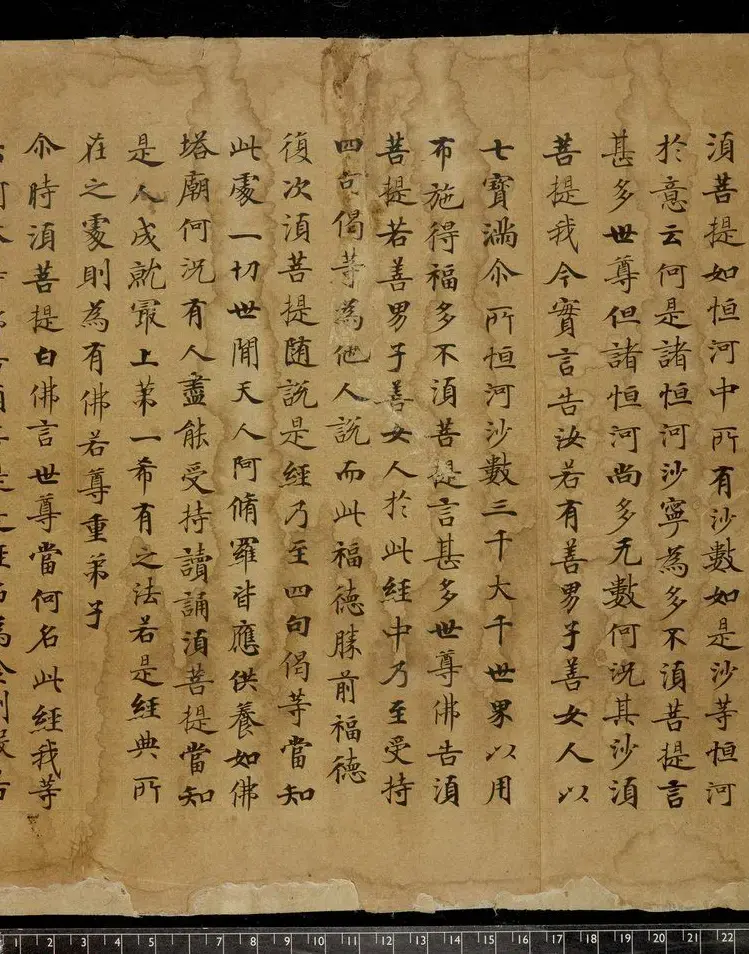 湏菩提如恒河中所有沙數如是沙等恒河
於意云何是諸恒河沙寧為多不湏菩提言
甚多世尊但諸恒河尚多无數何況其沙湏
菩提我今實言告汝若有善男子善女人以
七寶滿尒所恒河沙數三千大千世界以用
布施得福多不湏菩提言甚多世尊佛告湏
菩提若善男子善女人於此經中乃至受持
四句偈等為他人說而此福德勝前福德
復次湏菩提随說是經乃至四句偈等當知
此處一切世間天人阿脩羅皆應供養如佛
塔廟何況有人盡能受持讀誦湏菩提當知
是人成就冣上苐一希有之法若是經典所
在之處則為有佛若尊重弟子
尒時湏菩提白佛言世尊當何名此經我等
1 2 3 4 5 6 7 8 9 10 11 12 13 14 15 16 17 18 19 20 21 22